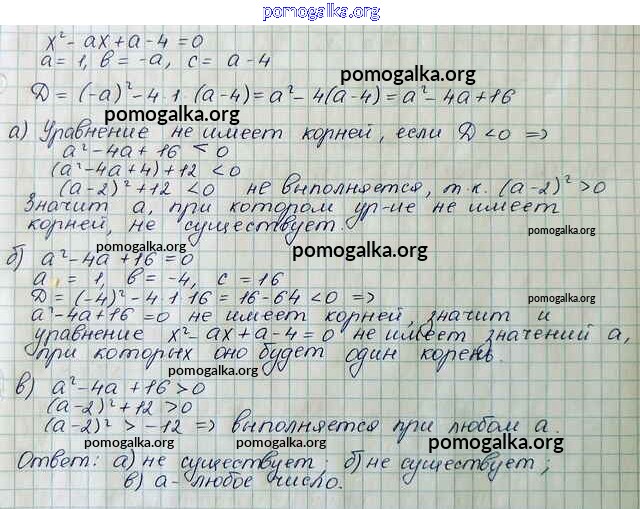 pomogalka.org
x² - ax + a - 4 = 0
a = 1, в = -a, c = a - 4
pomogalka.org
D = (-a)² - 4·1·(a-4) = a² - 4(a-4) = a² - 4a + 16
pomogalka.org
а) Уравнение не имеет корней, если D < 0 =>
a² - 4a + 16 < 0
pomogalka.org
(a² - 4a + 4) + 12 < 0
(a-2)² + 12 < 0 не выполняется, т.к. (a-2)² > 0
Значит a, при котором ур-ие не имеет
корней, не существует.
pomogalka.org
pomogalka.org pomogalka.org
б) a² - 4a + 16 = 0
a = 1, в = -4, c = 16
D = (-4)² - 4·1·16 = 16 - 64 < 0 =>
pomogalka.org
a² - 4a + 16 = 0 не имеет корней, значит и
уравнение x² - ax + a - 4 = 0 не имеет значений a,
при которых оно будет один корень.
pomogalka.org pomogalka.org
в) a² - 4a + 16 > 0
(a-2)² + 12 > 0
(a-2)² > -12 => выполняется при любом a.
pomogalka.org pomogalka.org pomogalka.org
Ответ: а) не существует; б) не существует;
в) a - любое число.
pomogalka.org pomogalka.org